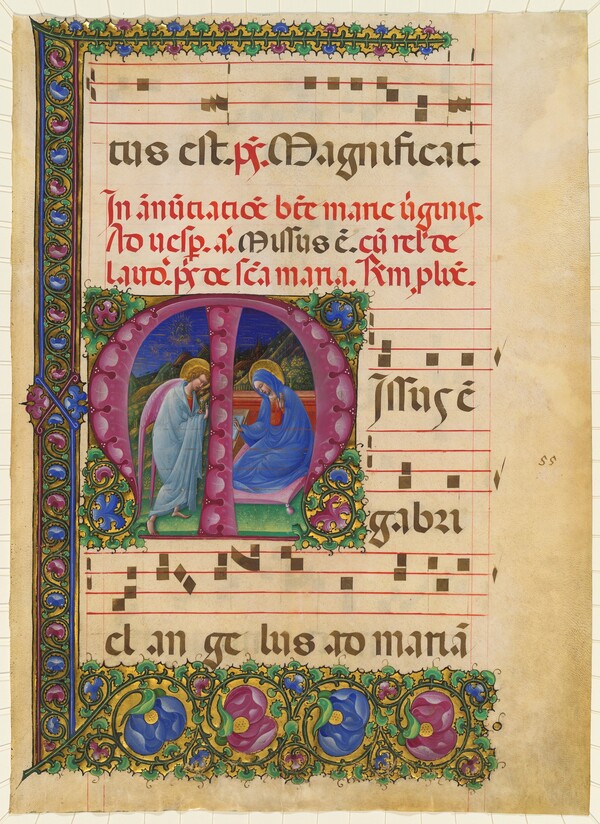 tus est. p̄s. Magnificat.
In ānūtiatiōe bt̄e marie ūginis.
Ad uesp̄. a. Missus ē. cū rel' de
laud. p̄s de sc̄a maria. Rm, pluē.
Missus ē
gabri
el an ge lus ad mariā
55